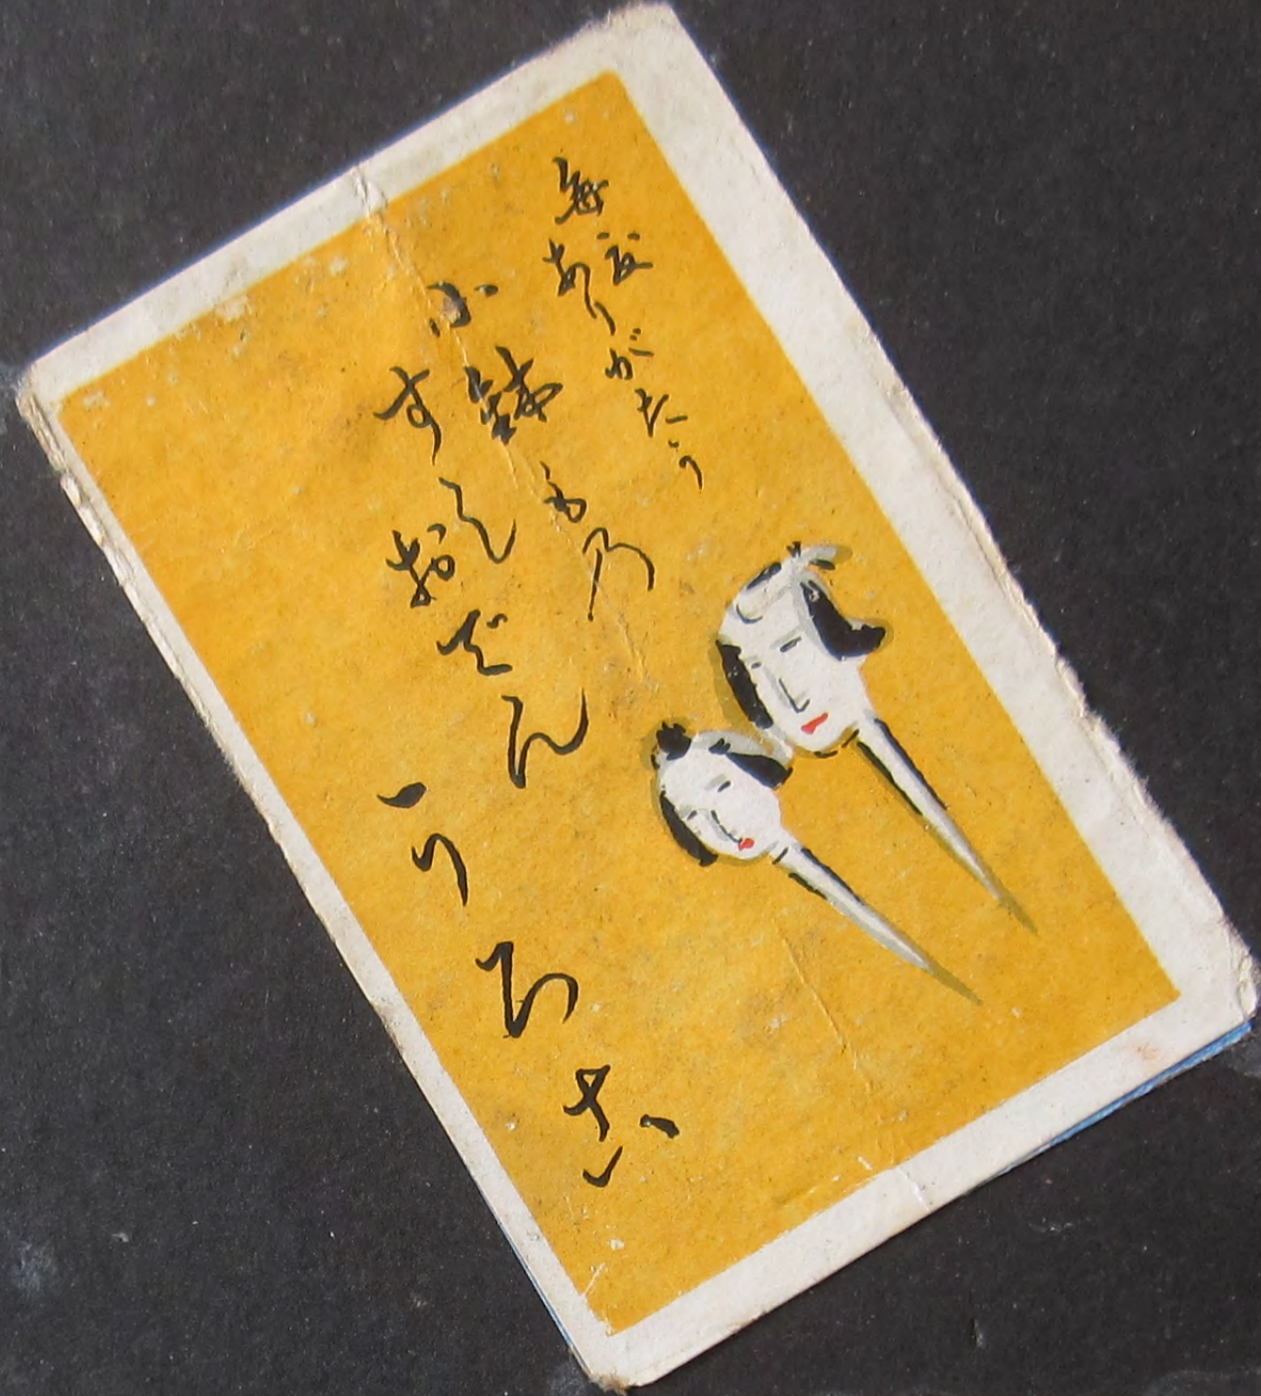 毎度ありがたう
小鉢もの
すし
おでん
うろこ